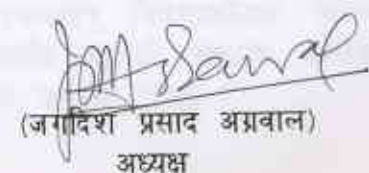 (जगदिश प्रसाद अग्रवाल)
अध्यक्ष